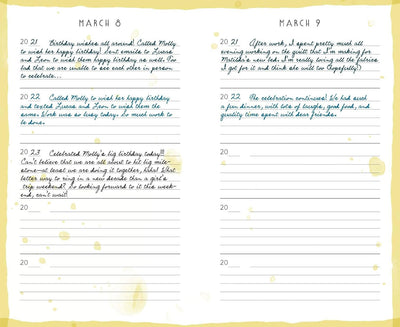 MARCH 8
20 21 Birthday wishes all around! Called Molly
to wish her happy birthday. Sent emails to Lucas
and Leon to wish them happy birthday as well. Too
bad that we are unable to see each other in person
to celebrate...
20 22 Called Molly to wish her happy birthday
and texted Lucas and Leon to wish them the
same. Work was so busy today. So much work to
be done.
20 23 Celebrated Molly's big birthday today!!!
Can't believe that we are all about to hit big mile-
stone-at least we are doing it together, haha! What
better way to ring in a new decade than a girl's
trip weekend? So looking forward to it this week-
end, can't wait!
20
20
20
MARCH 9
20 21 After work, I spent pretty much all
evening working on the quilt that I'm making for
Matilda's new bed. I'm really loving all the fabrics
I got for it and think she will too (hopefully!)
20 22 The celebration continues! We had such
a fun dinner, with lots of laughs, good food, and
quality time spent with dear friends.
20
20
20
20